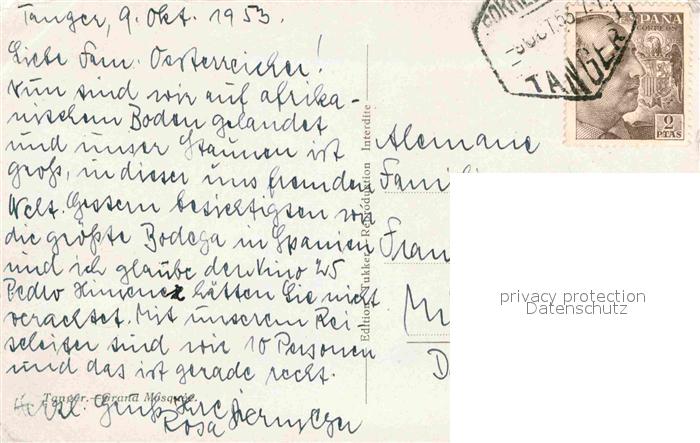 Tanger, 9. Okt. 1953.
Liebe Fam. Oesterreicher!
Nun sind wir auf afrika-
nischem Boden gelandet
und unser Staunen ist
groß, in dieser uns fremden
Welt. Gestern besichtigten wir
die größte Bodega in Spanien
und ich glaube den Vino 25
Pedro Himenez hätten Sie nicht
verachtet. Mit unserem Rei
seleiter sind wir 10 Personen
und das ist gerade recht.
Tanger. - Grand Mosquée.
Herzl. Gruß Ihre
Rosa
Edition Reproduction Interdite
CORRE
9 OCT 53
TANGER
ESPAÑA
CORREOS
2
PTAS
Alemane
Famili
Fran
Mü
D
privacy protection
Datenschutz